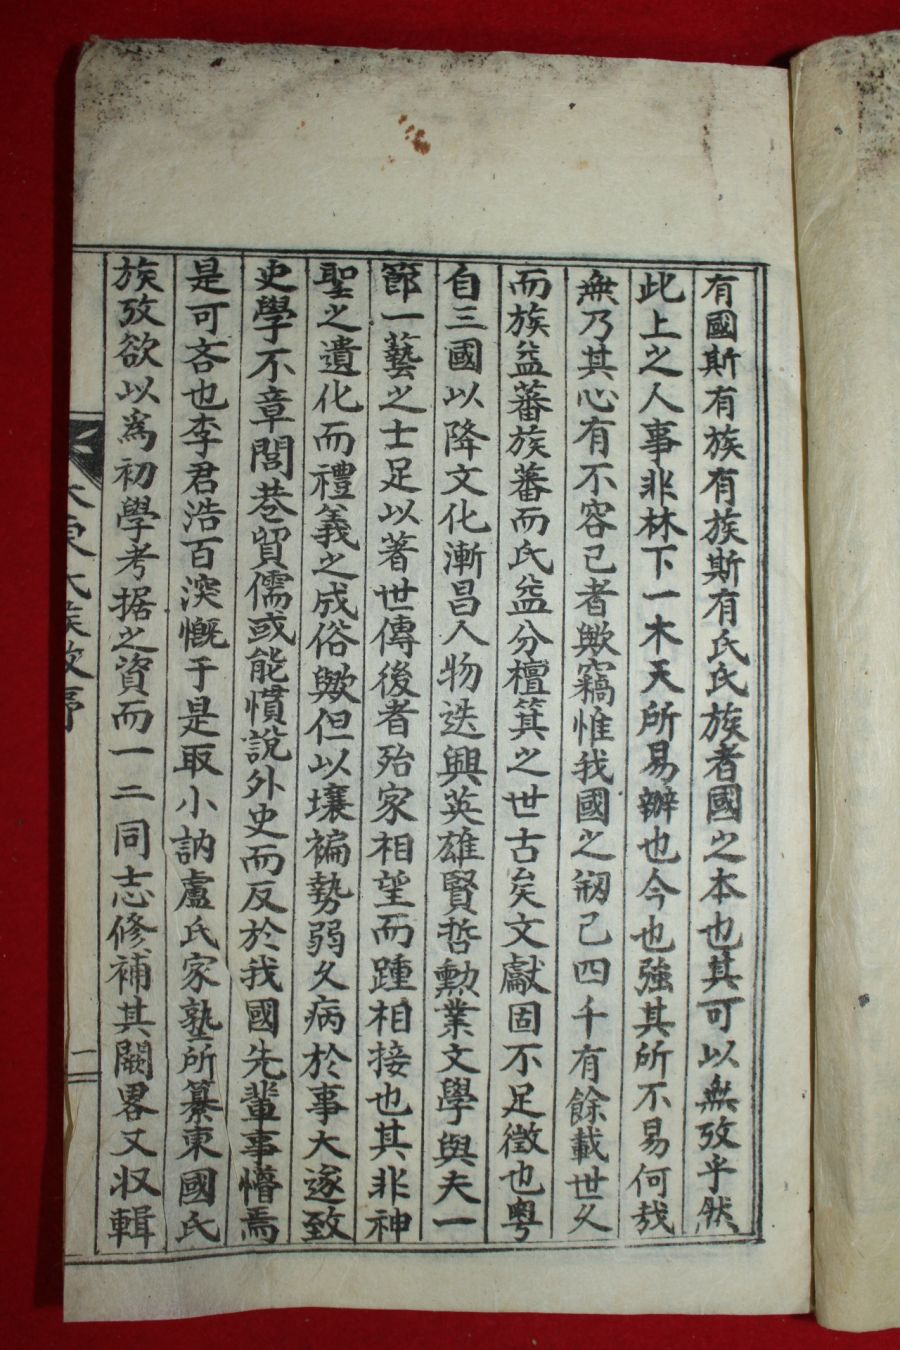 有國斯有族有族斯有氏氏族者國之本也其可以無攷乎然
此上之人事非林下一木天所易辦也今也強其所不易何哉
無乃其心有不容已者歟竊惟我國之剏已四千有餘載世久
而族益蕃族蕃而氏益分檀箕之世古矣文獻固不足徵也粤
自三國以降文化漸昌人物迭興英雄賢哲勳業文學與夫一
節一藝之士足以著世傳後者殆家相望而踵相接也其非神
聖之遺化而禮義之成俗歟但以壤褊勢弱久病於事大遂致
史學不章閭巷貿儒或能慣說外史而反於我國先輩事懵焉
是可吝也李君浩百深慨于是取小訥盧氏家塾所纂東國氏
族攷欲以爲初學考据之資而一二同志修補其闕畧又収輯
大東氏族攷序
二